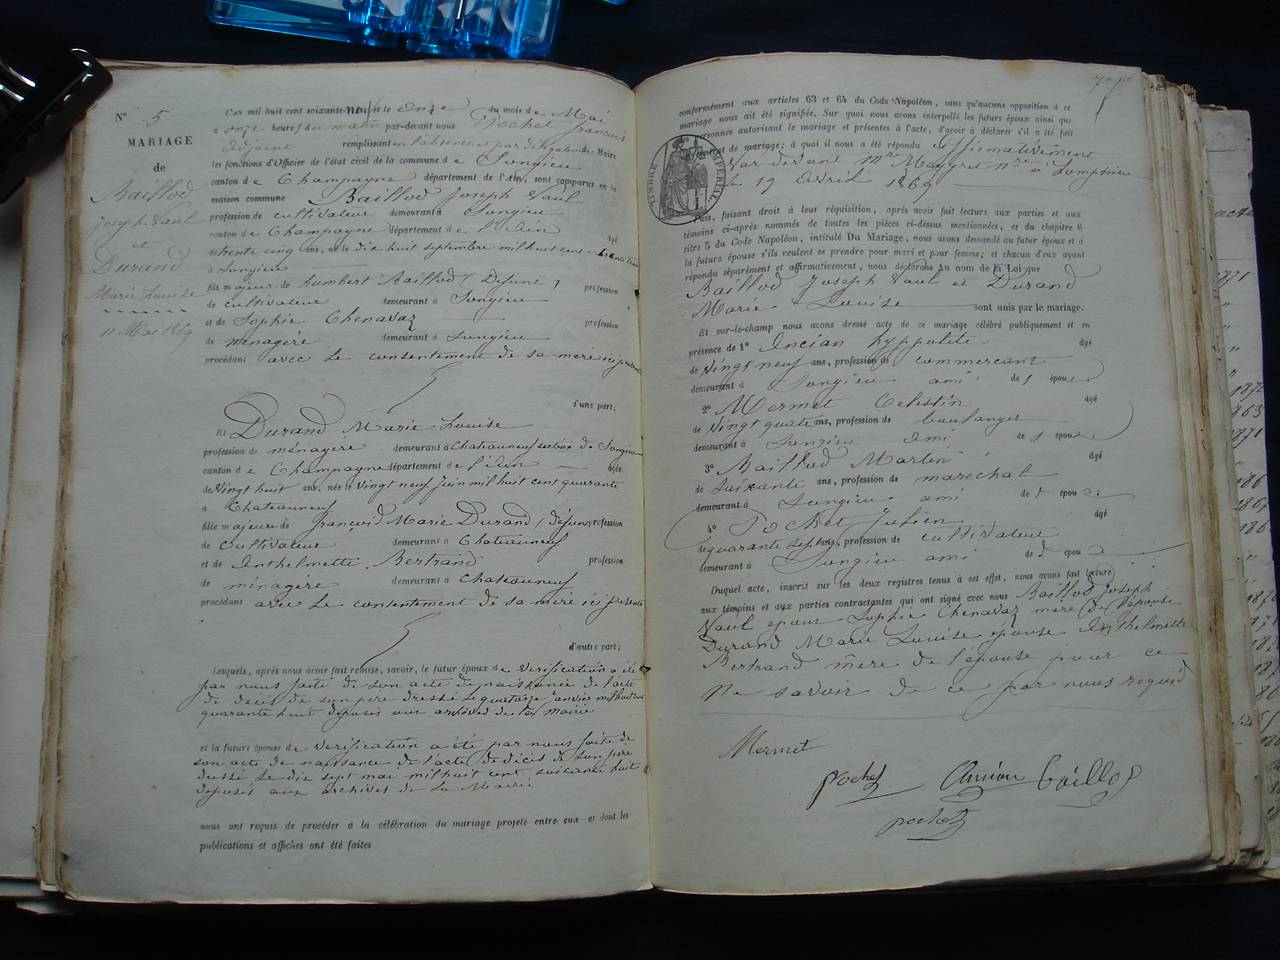 N° 5
MARIAGE
de
Baillod
Joseph Paul
et
Durand
Marie Louise
11 Mai 1869
L'an mil huit cent soixante-neuf et le onze du mois de Mai
à onze heures du matin par-devant nous Pochet François
adjoint remplissant en l'absence et par délégation du Maire
les fonctions d'Officier de l'État civil de la commune de Songieu
canton de Champagne département de l'Ain, sont comparus en la
maison commune Baillod Joseph Paul
profession de cultivateur demeurant à Songieu
canton de Champagne département de l'Ain âgé
de trente cinq ans, né le dix huit septembre mil huit cent
à Songieu
fils majeur de humbert Baillod / Défunt / profession
de cultivateur demeurant à Songieu
et de Sophie Chenavaz profession
de ménagère demeurant à Songieu
procédant avec le consentement de sa mère ici présente
d'une part;
Et Durand Marie Louise
profession de ménagère demeurant à Chateauneuf section de Songieu
canton de Champagne département de l'Ain âgée
de vingt huit ans, née le vingt neuf juin mil huit cent quarante
à Chateauneuf
fille majeure de françois Marie Durand / défunt profession
de cultivateur demeurant à Chateauneuf
et de Anthelmette Bertrand profession
de ménagère demeurant à Chateauneuf
procédant avec le consentement de sa mère ici présente
d'autre part;
Lesquels, après nous avoir fait remise, savoir, le futur époux de vérification a été
par nous faite de son acte de naissance de l'acte
de décès de son père dressé le quatorze janvier mil huit cent
quarante huit déposés aux archives de la mairie
et la future épouse de vérification a été par nous faite de
son acte de naissance de l'acte de décès de son père
dressé le dix sept mai mil huit cent soixante huit
déposés aux archives de la Mairie
nous ont requis de procéder à la célébration du mariage projeté entre eux et dont les
publications et affiches ont été faites
conformément aux articles 63 et 64 du Code Napoléon, sans qu'aucune opposition à ce
mariage nous ait été signifiée. Sur quoi nous avons interpellé les futurs époux ainsi que
personnes autorisant le mariage et présentes à l'acte, d'avoir à déclarer s'il a été fait
contrat de mariage; à quoi il nous a été répondu affirmativement
par devant Mr Maygret nre à Lompnieu
le 19 Avril 1869
TIMBRE IMPÉRIAL
Puis, faisant droit à leur réquisition, après avoir fait lecture aux parties et aux
témoins ci-après nommés de toutes les pièces ci-dessus mentionnées, et du chapitre 6
titre 5 du Code Napoléon, intitulé Du Mariage, nous avons demandé au futur époux et à
la future épouse s'ils veulent se prendre pour mari et pour femme; et chacun d'eux ayant
répondu séparément et affirmativement, nous déclarons au nom de la Loi que
Baillod Joseph Paul et Durand
Marie Louise sont unis par le mariage.
Et sur-le-champ nous avons dressé acte de ce mariage célébré publiquement et en
présence de 1° Ancian hyppolite âgé
de vingt neuf ans, profession de commercant
demeurant à Songieu ami de l'époux
2° Mermet Celestin âgé
de vingt quatre ans, profession de boulanger
demeurant à Songieu ami de l'époux
3° Baillod Martin âgé
de soixante ans, profession de maréchal
demeurant à Songieu ami de l'époux
4° Pochet Julien âgé
de quarante sept ans, profession de cultivateur
demeurant à Songieu ami de l'époux
Duquel acte, inscrit sur les deux registres tenus à cet effet, nous avons fait lecture
aux témoins et aux parties contractantes qui ont signé avec nous Baillod Joseph
Paul époux Sophie Chenavaz mère de l'épouse
Durand Marie Louise épouse Anthelmette
Bertrand mère de l'épouse pour ce
ne savoir de ce par nous requis
Mermet
pochet Ancian Baillod
pochet